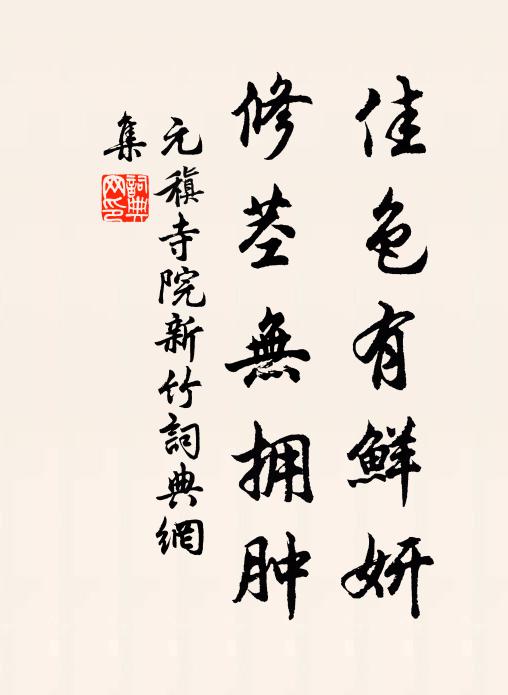 佳色有鮮妍
修莖無拥肿
元稹寺院新竹詞典網
集
詞典
网印